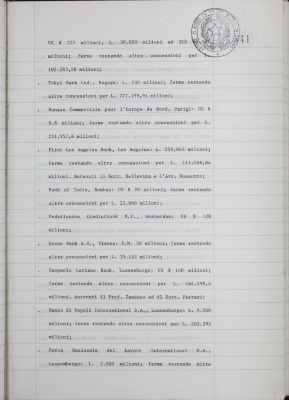 US $ 225 milioni, L. 50.000 milioni ed
milioni; ferme restando altre concessioni per L.
105.585,58 milioni;
- Tokai Bank Ltd., Nagoya: L. 250 milioni; ferme restando
altre concessioni per L. 277.199,94 milioni;
- Banque Commerciale pour l'Europe du Nord, Parigi: US $
milioni; ferme restando altre concessioni per L.
231.957,6 milioni;
- First Los Angeles Bank, Los Angeles: L. 209,862 milioni;
ferme restando altre concessioni per L. 161.006,84
milioni. Astenuti il Dott. Bellavita e l'Avv. Rossetto;
- Bank of India, Bombay: US $ 20 milioni; ferme restando
altre concessioni per L. 22.660 milioni;
- Nederlandse Credietbank N.V., Amsterdam: US $ 128
milioni;
- Bank A.G., Vienna: D.M. 30 milioni; ferme restando
altre concessioni per L. 35.152 milioni;
- Sanpaolo Lariano Bank, Luxembourg: US $ 100 milioni;
ferme restando altre concessioni per L. 162.598,4
milioni. Astenuti il Prof. Zandano ed il Dott. Ferrari;
- Banco di Napoli International S.A., Luxembourg: L. 5.000
milioni; ferme restando altre concessioni per L. 202.392
milioni;
- Banca Nazionale del Lavoro International S.A.,
Luxembourg: L. 1.000 milioni; ferme restando altre